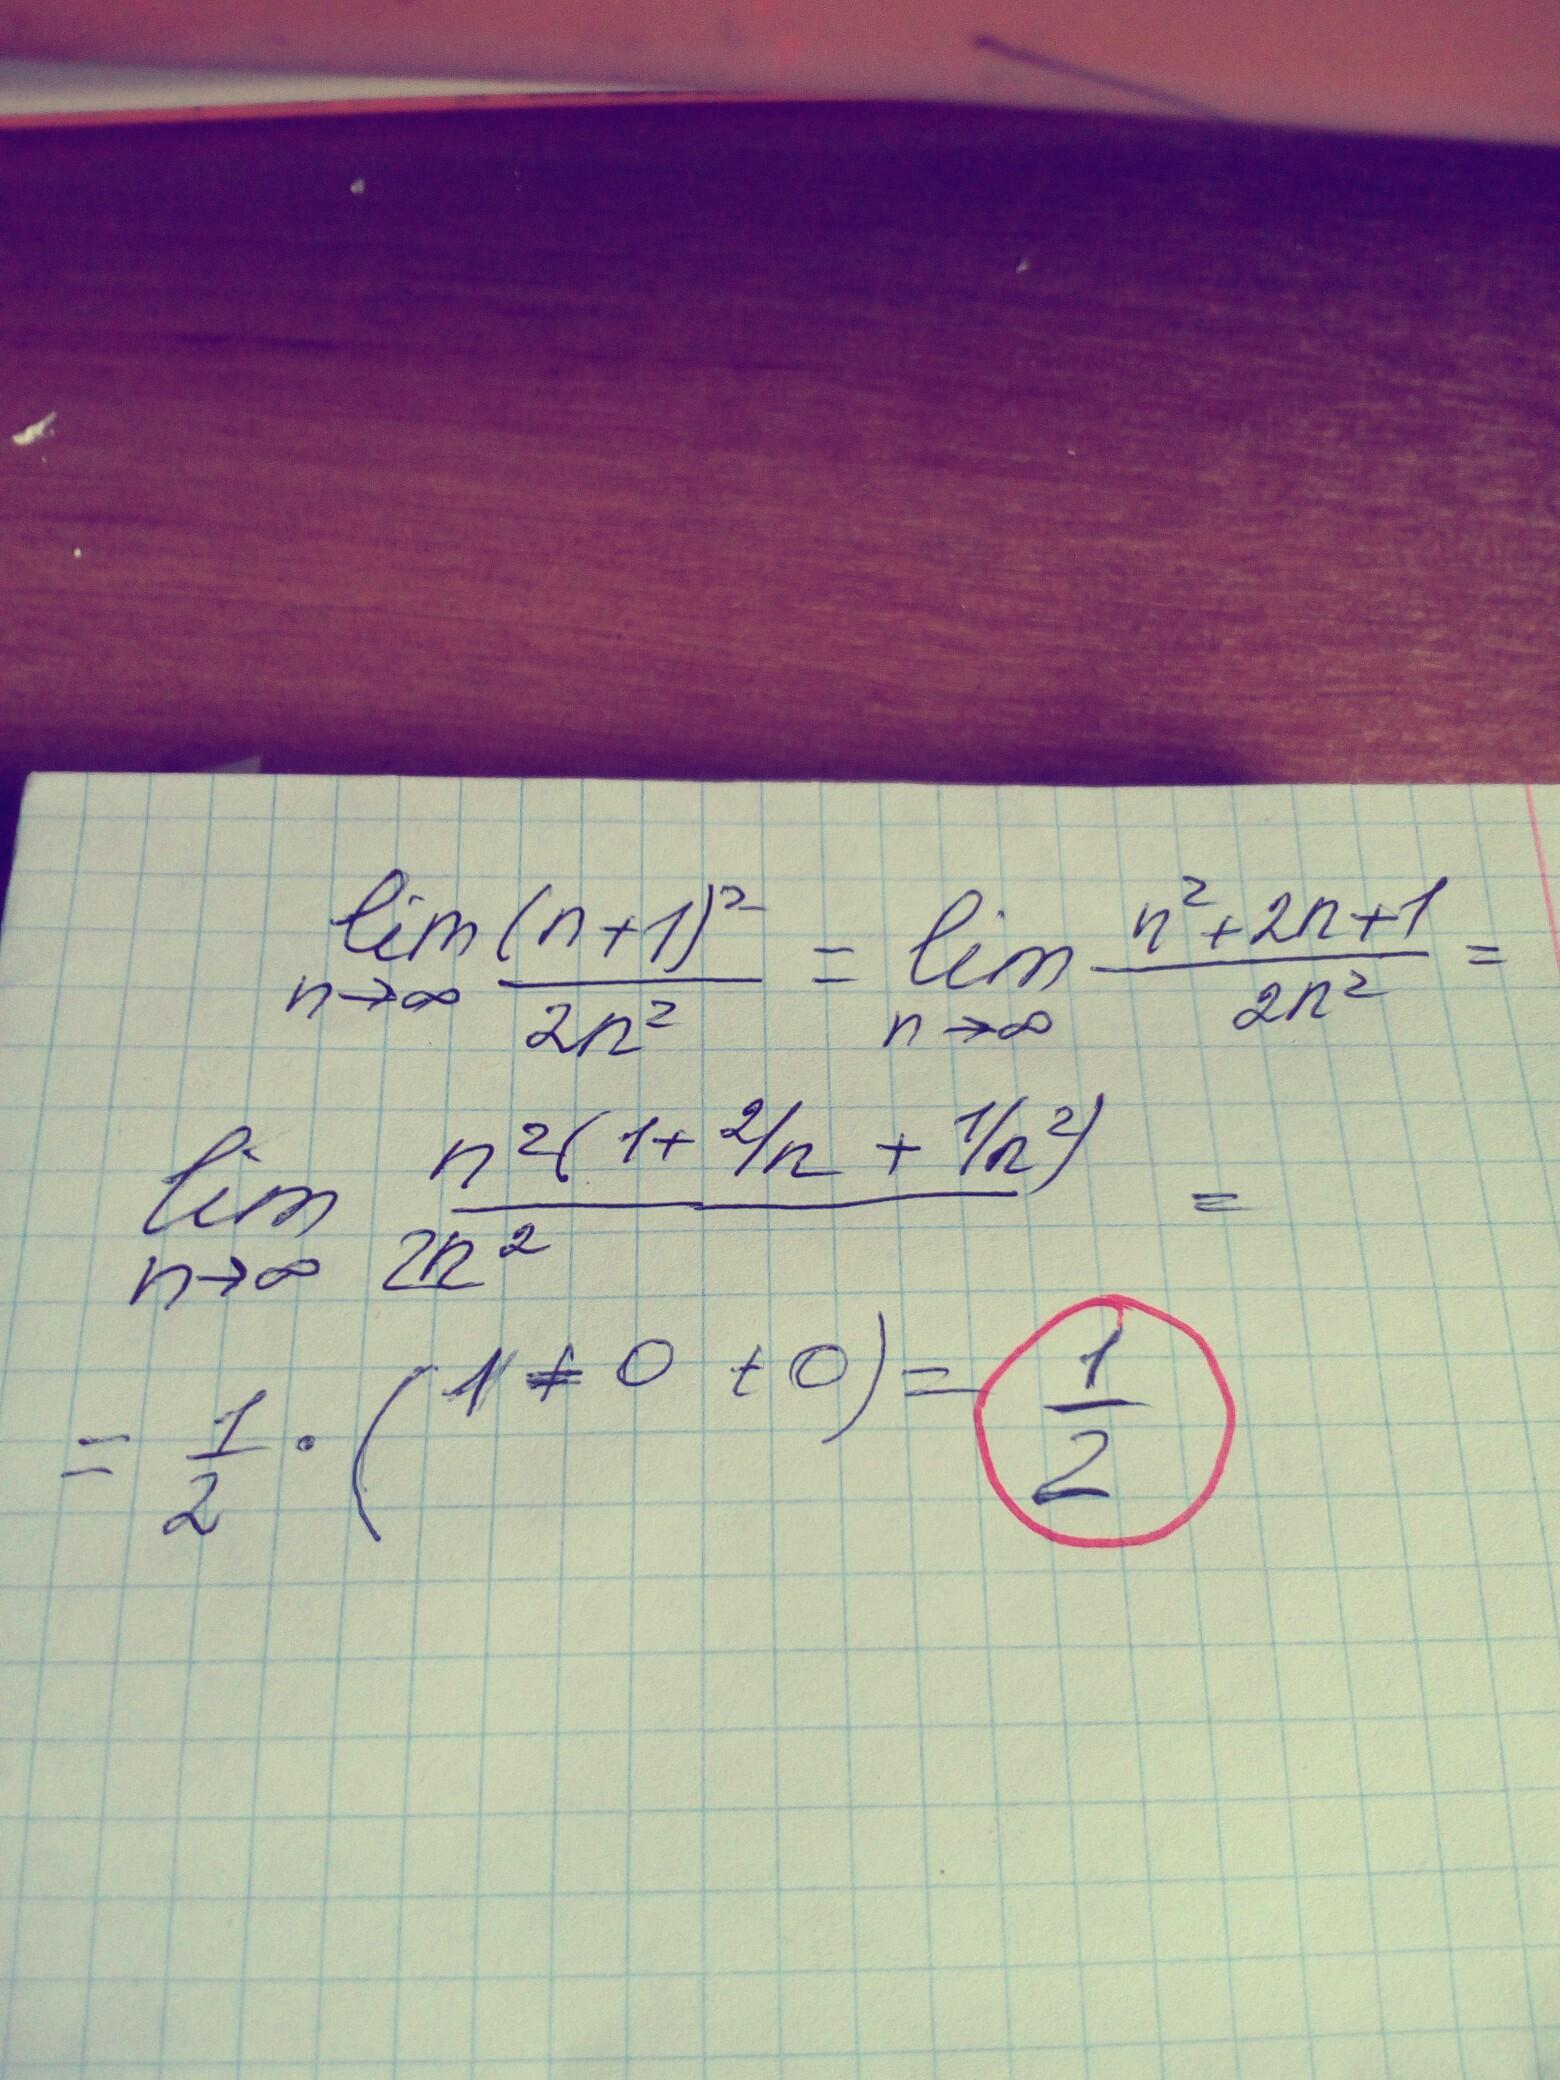 lim n→∞ (n+1)²/2n² = lim n→∞ n²+2n+1/2n² =
lim n→∞ n²(1+2/n+1/n²)/2n² =
= 1/2 · (1+0+0) = 1/2